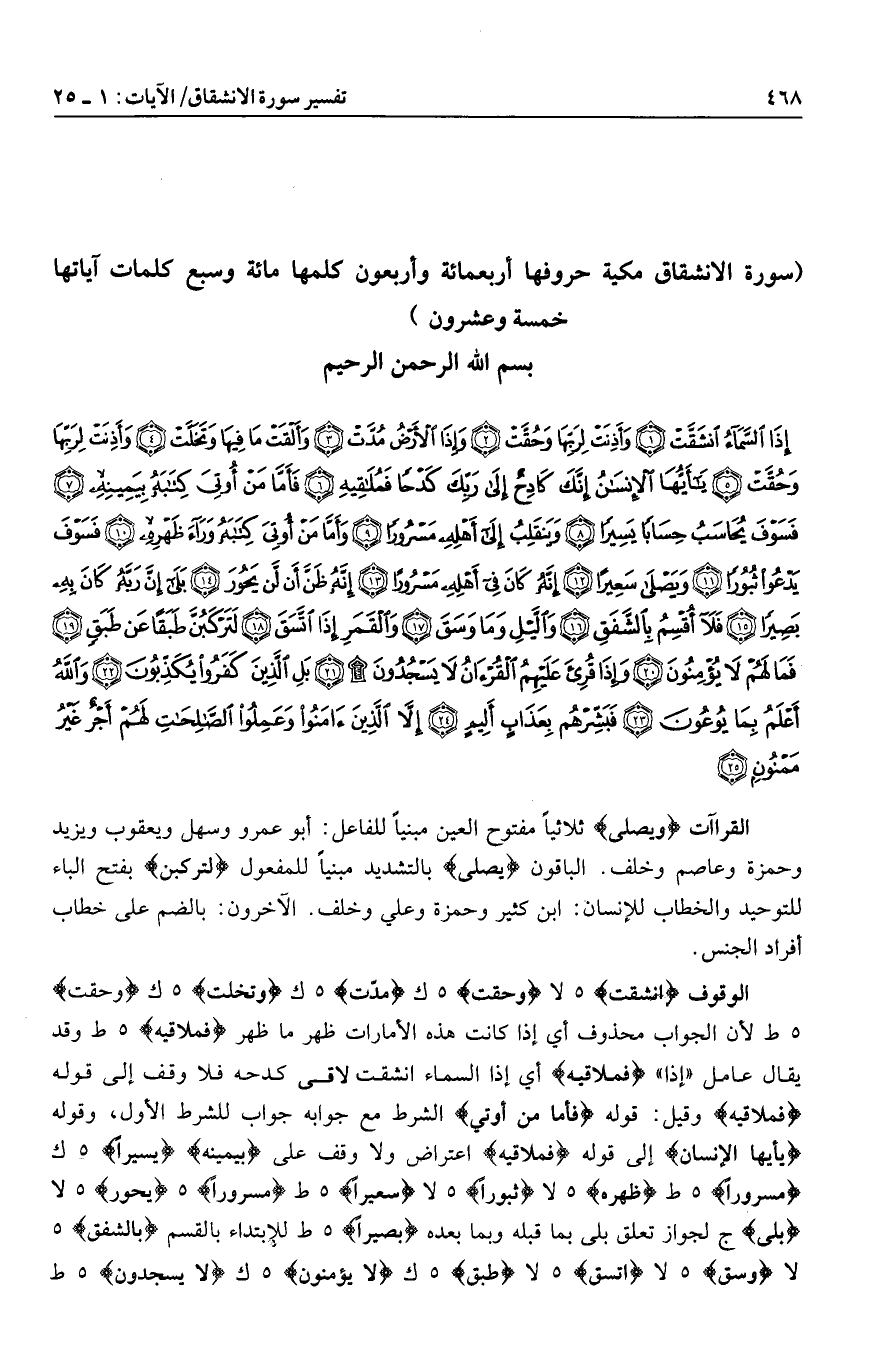 ٤٦٨ تفسير سورة الانشقاق/ الآيات: ١ ـ ٢٥
(سورة الانشقاق مكية حروفها أربعمائة وأربعون كلمها مائة وسبع كلمات آياتها
خمسة وعشرون )
بسم الله الرحمن الرحيم
إِذَا ٱلسَّمَآءُ ٱنشَقَّتْ ﴿١﴾ وَأَذِنَتْ لِرَبِّهَا وَحُقَّتْ ﴿٢﴾ وَإِذَا ٱلْأَرْضُ مُدَّتْ ﴿٣﴾ وَأَلْقَتْ مَا فِيهَا وَتَخَلَّتْ ﴿٤﴾ وَأَذِنَتْ لِرَبِّهَا
وَحُقَّتْ ﴿٥﴾ يَٰٓأَيُّهَا ٱلْإِنسَٰنُ إِنَّكَ كَادِحٌ إِلَىٰ رَبِّكَ كَدْحًا فَمُلَٰقِيهِ ﴿٦﴾ فَأَمَّا مَنْ أُوتِىَ كِتَٰبَهُۥ بِيَمِينِهِۦ ﴿٧﴾
فَسَوْفَ يُحَاسَبُ حِسَابًا يَسِيرًا ﴿٨﴾ وَيَنقَلِبُ إِلَىٰٓ أَهْلِهِۦ مَسْرُورًا ﴿٩﴾ وَأَمَّا مَنْ أُوتِىَ كِتَٰبَهُۥ وَرَآءَ ظَهْرِهِۦ ﴿١٠﴾ فَسَوْفَ
يَدْعُوا۟ ثُبُورًا ﴿١١﴾ وَيَصْلَىٰ سَعِيرًا ﴿١٢﴾ إِنَّهُۥ كَانَ فِىٓ أَهْلِهِۦ مَسْرُورًا ﴿١٣﴾ إِنَّهُۥ ظَنَّ أَن لَّن يَحُورَ ﴿١٤﴾ بَلَىٰٓ إِنَّ رَبَّهُۥ كَانَ بِهِۦ
بَصِيرًا ﴿١٥﴾ فَلَآ أُقْسِمُ بِٱلشَّفَقِ ﴿١٦﴾ وَٱلَّيْلِ وَمَا وَسَقَ ﴿١٧﴾ وَٱلْقَمَرِ إِذَا ٱتَّسَقَ ﴿١٨﴾ لَتَرْكَبُنَّ طَبَقًا عَن طَبَقٍ ﴿١٩﴾
فَمَا لَهُمْ لَا يُؤْمِنُونَ ﴿٢٠﴾ وَإِذَا قُرِئَ عَلَيْهِمُ ٱلْقُرْءَانُ لَا يَسْجُدُونَ ۩ ﴿٢١﴾ بَلِ ٱلَّذِينَ كَفَرُوا۟ يُكَذِّبُونَ ﴿٢٢﴾ وَٱللَّهُ
أَعْلَمُ بِمَا يُوعُونَ ﴿٢٣﴾ فَبَشِّرْهُم بِعَذَابٍ أَلِيمٍ ﴿٢٤﴾ إِلَّا ٱلَّذِينَ ءَامَنُوا۟ وَعَمِلُوا۟ ٱلصَّٰلِحَٰتِ لَهُمْ أَجْرٌ غَيْرُ
مَمْنُونٍ ﴿٢٥﴾
القراآت ﴿ويصلى﴾ ثلاثياً مفتوح العين مبنياً للفاعل: أبو عمرو وسهل ويعقوب ويزيد
وحمزة وعاصم وخلف. الباقون ﴿يصلى﴾ بالتشديد مبنياً للمفعول ﴿لتركبن﴾ بفتح الباء
للتوحيد والخطاب للإنسان: ابن كثير وحمزة وعلي وخلف. الآخرون: بالضم على خطاب
أفراد الجنس.
الوقوف ﴿انشقت﴾ ٥ لا ﴿وحقت﴾ ٥ ك ﴿مدّت﴾ ٥ ك ﴿وتخلت﴾ ٥ ك ﴿وحقت﴾
٥ ط لأن الجواب محذوف أي إذا كانت هذه الأمارات ظهر ما ظهر ﴿فملاقيه﴾ ٥ ط وقد
يقال عامل «إذا» ﴿فملاقيه﴾ أي إذا السماء انشقت لاقى كدحه فلا وقف إلى قوله
﴿فملاقيه﴾ وقيل: قوله ﴿فأما من أوتي﴾ الشرط مع جوابه جواب للشرط الأول، وقوله
﴿يأيها الإنسان﴾ إلى قوله ﴿فملاقيه﴾ اعتراض ولا وقف على ﴿بيمينه﴾ ﴿يسيراً﴾ ٥ ك
﴿مسروراً﴾ ٥ ط ﴿ظهره﴾ ٥ لا ﴿ثبوراً﴾ ٥ لا ﴿سعيراً﴾ ٥ ط ﴿مسروراً﴾ ٥ ﴿يحور﴾ ٥ لا
﴿بلى﴾ ج لجواز تعلق بلى بما قبله وبما بعده ﴿بصيراً﴾ ٥ ط للإبتداء بالقسم ﴿بالشفق﴾ ٥
لا ﴿وسق﴾ ٥ لا ﴿اتسق﴾ ٥ لا ﴿طبق﴾ ٥ ك ﴿لا يؤمنون﴾ ٥ ك ﴿لا يسجدون﴾ ٥ ط